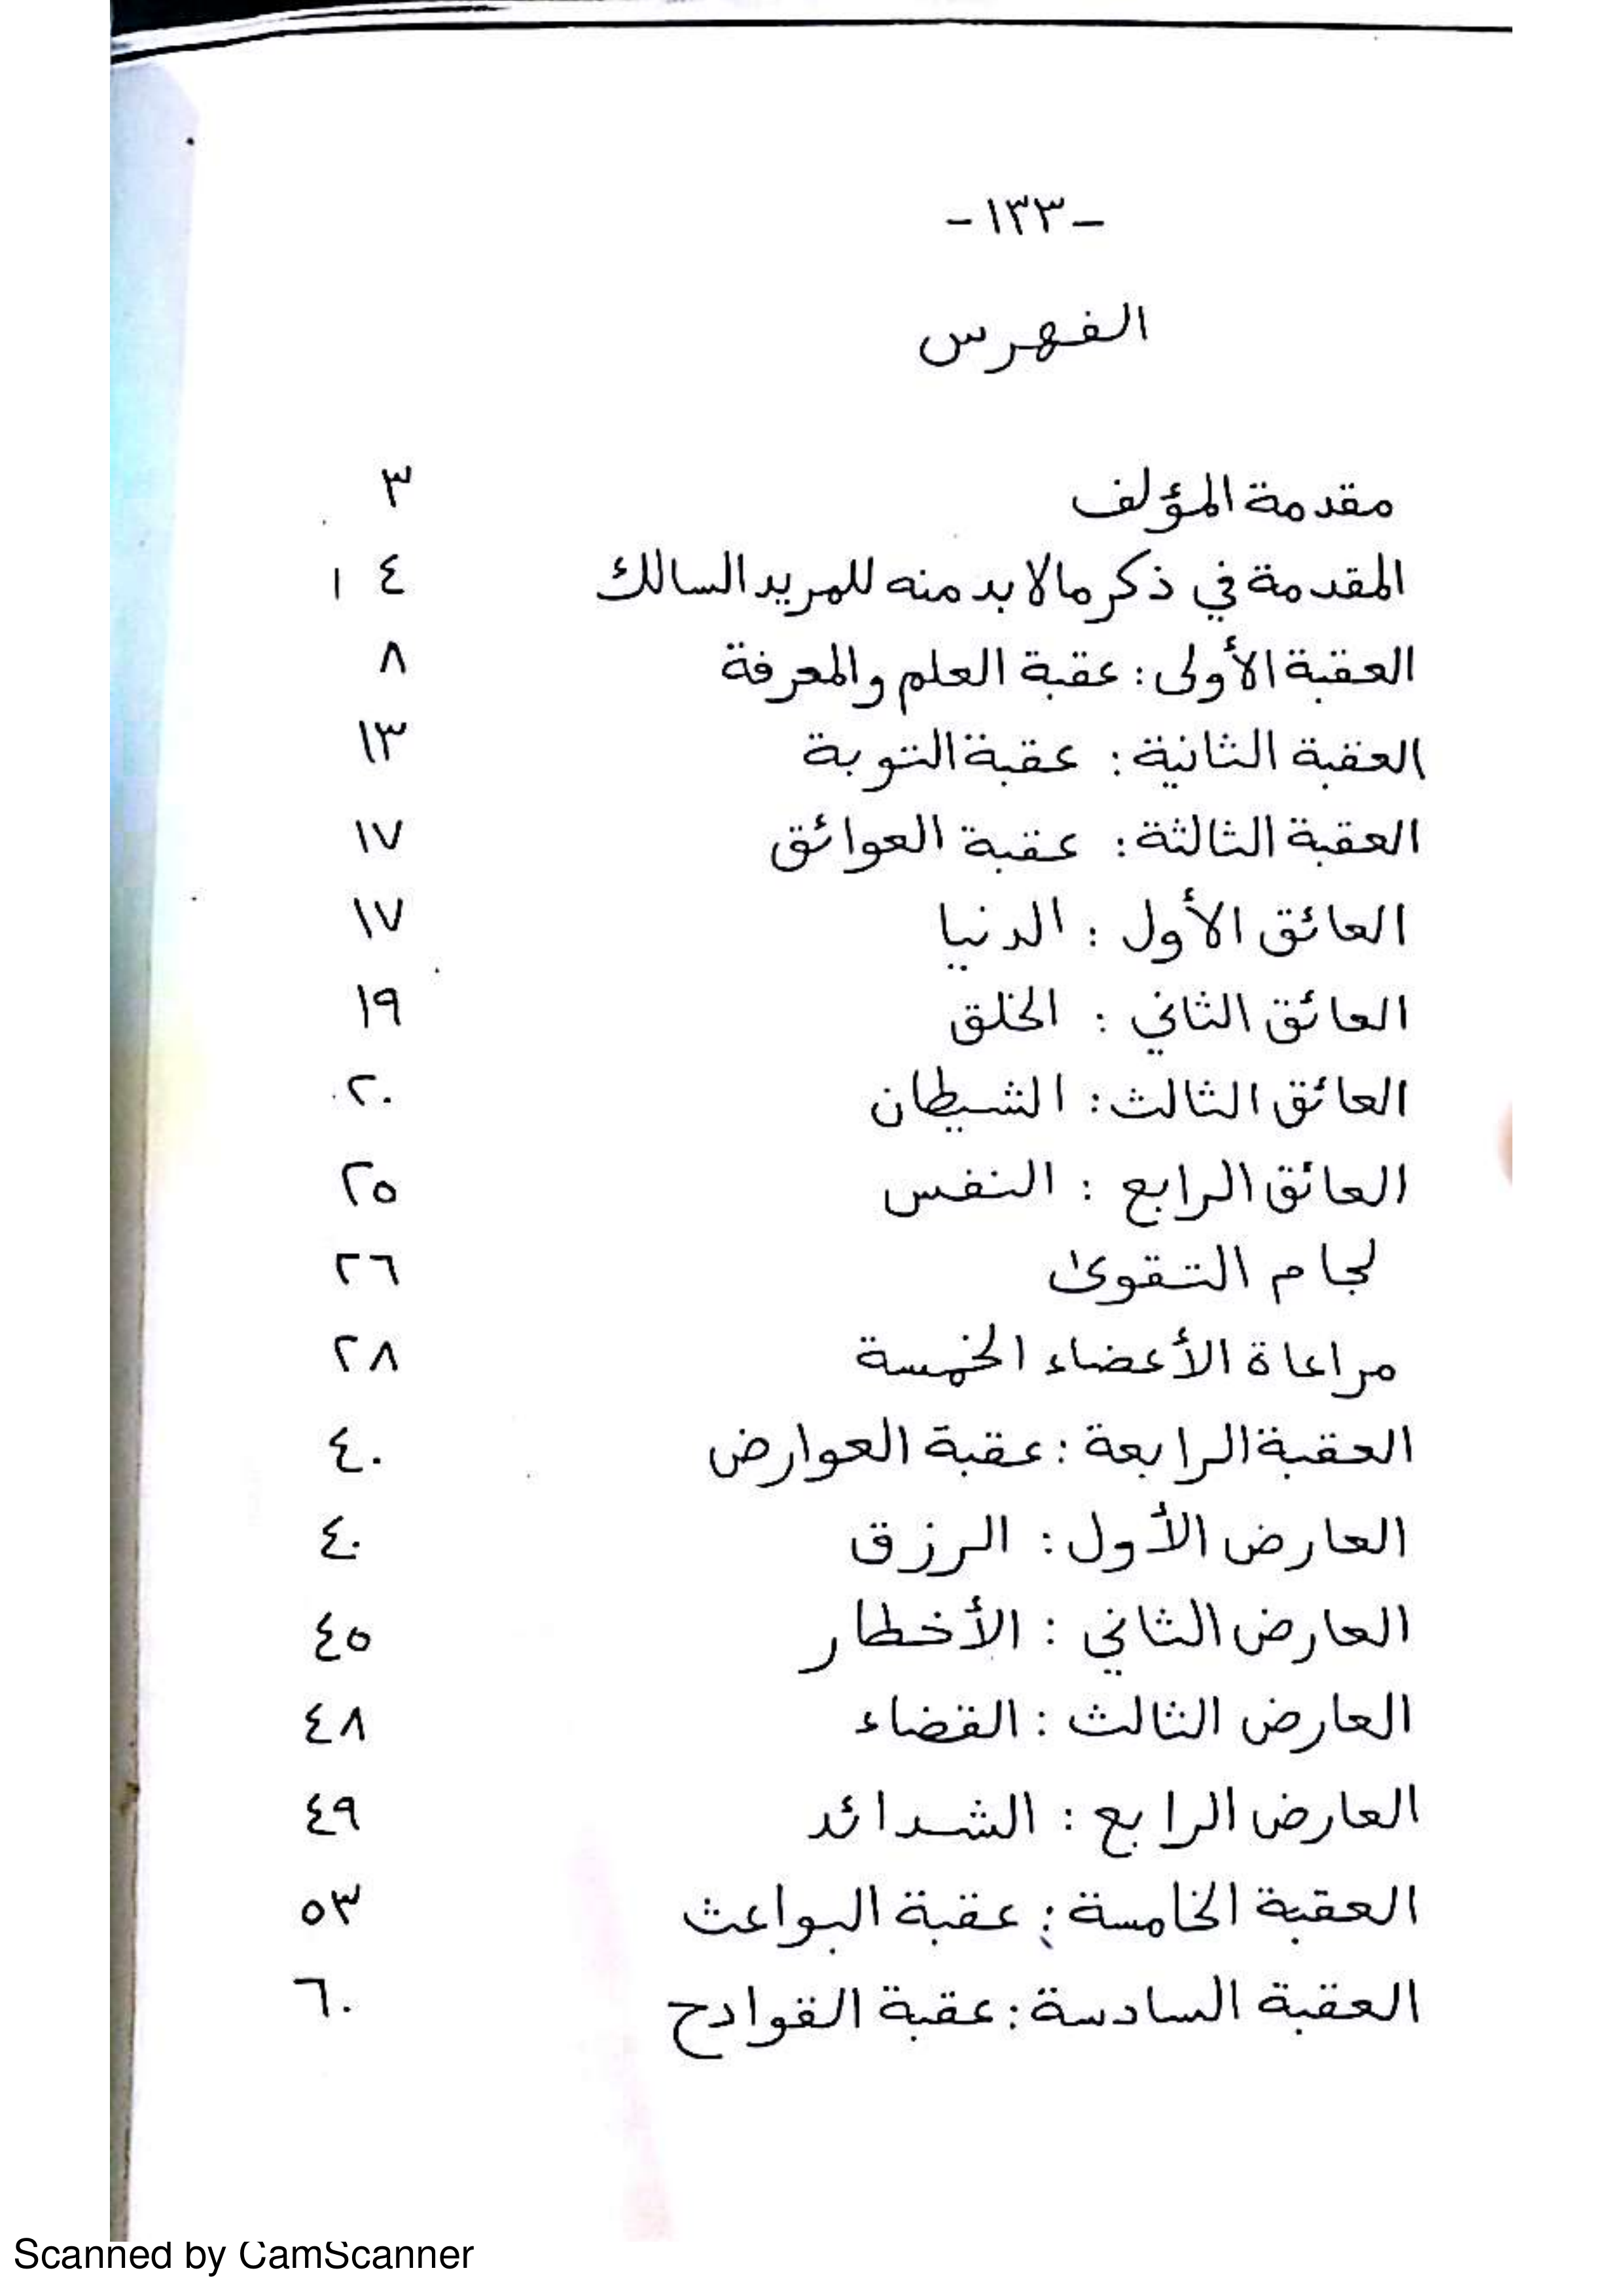 -١٣٣-
الفهرس
مقدمة المؤلف ٣
المقدمة في ذكر مالا بد منه للمريد السالك ٤
العقبة الأولى: عقبة العلم والمعرفة ٨
العقبة الثانية: عقبة التوبة ١٣
العقبة الثالثة: عقبة العوائق ١٧
العائق الأول: الدنيا ١٧
العائق الثاني: الخلق ١٩
العائق الثالث: الشيطان ٢٠
العائق الرابع: النفس ٢٥
لجام التقوىٰ ٢٦
مراعاة الأعضاء الخمسة ٢٨
العقبة الرابعة: عقبة العوارض ٤٠
العارض الأول: الرزق ٤٠
العارض الثاني: الأخطار ٤٥
العارض الثالث: القضاء ٤٨
العارض الرابع: الشدائد ٤٩
العقبة الخامسة: عقبة البواعث ٥٣
العقبة السادسة: عقبة القوادح ٦٠
Scanned by CamScanner